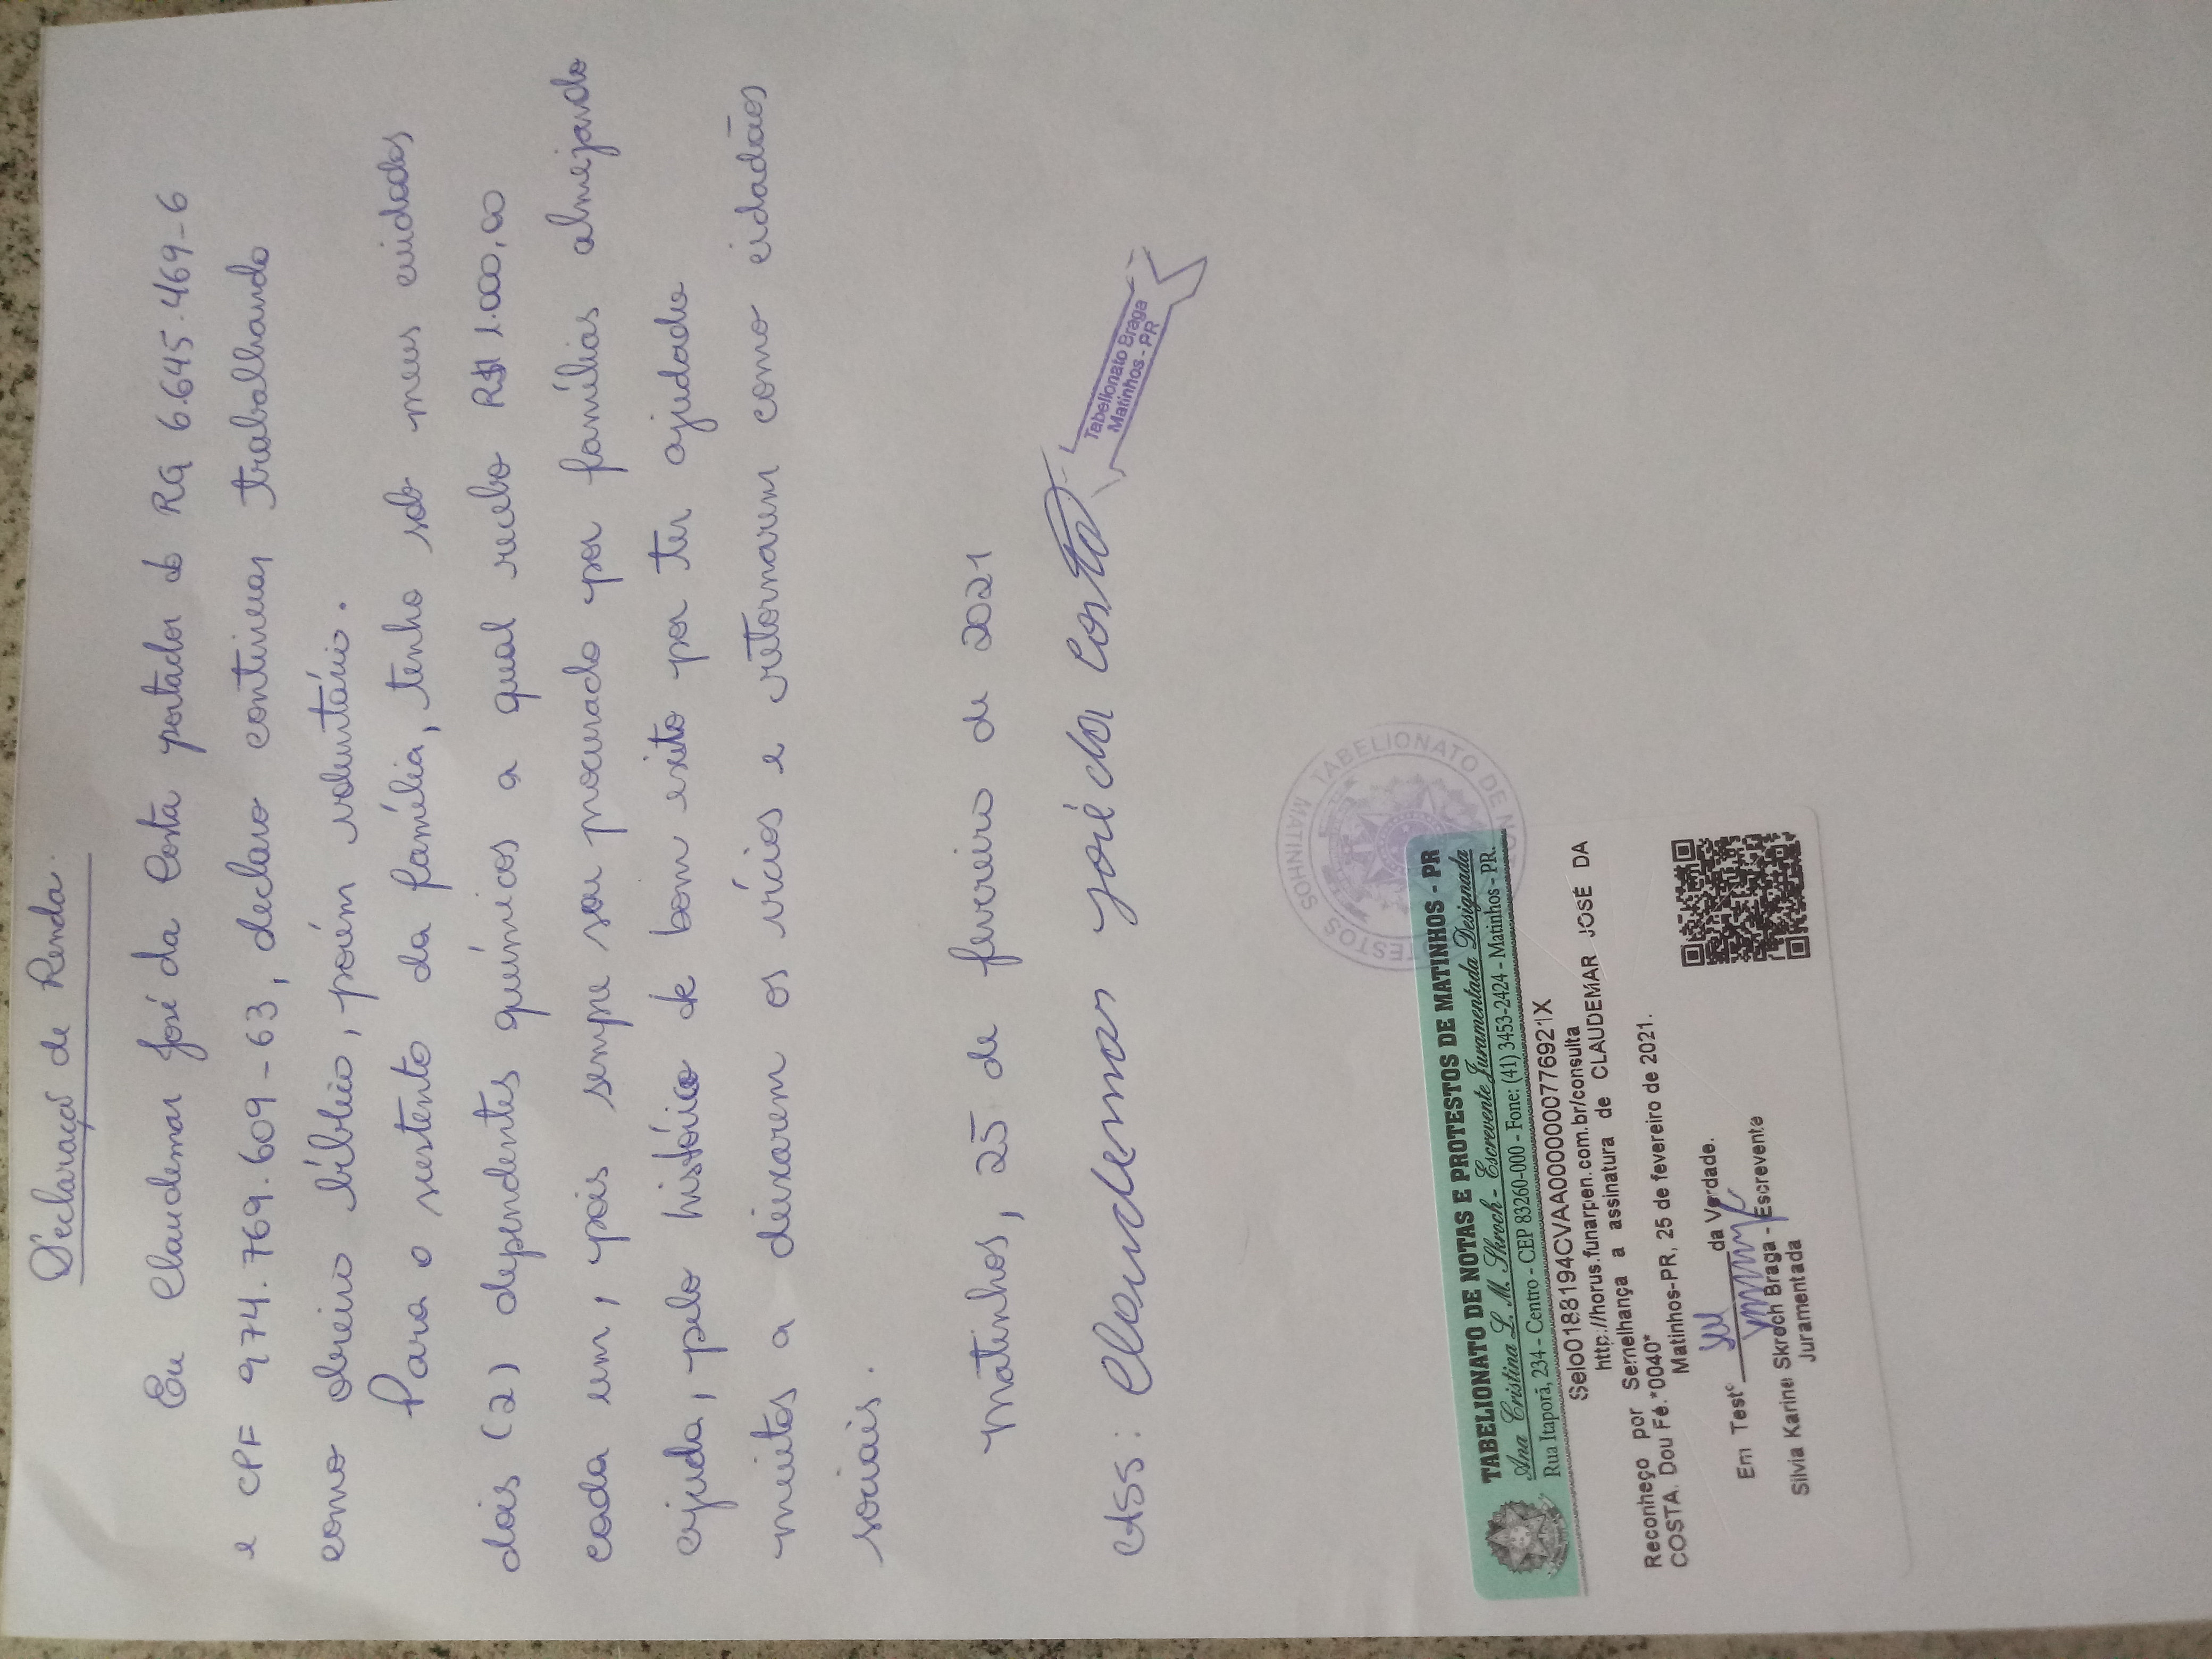 Declaração de Renda.
Eu Claudemar José da Costa portador do RG 6.645.469-6
e CPF 974.769.609-63, declaro continuar trabalhando
como obreiro bíblico, porém voluntário.
Para o sustento da família, tenho sob meus cuidados
dois (2) dependentes químicos a qual recebo R$ 1.000,00
cada um, pois sempre sou procurado por famílias almejando
ajuda, pelo histórico de bom exito por ter ajudado
muitos a deixarem os vícios e retornarem como cidadãos
sociais.
Matinhos, 25 de fevereiro de 2021
Ass: Claudemar José da Costa
Tabelionato Braga
Matinhos - PR
MATINHOS TABELIONATO DE NOT PROTESTOS
TABELIONATO DE NOTAS E PROTESTOS DE MATINHOS - PR
Ana Cristina L. M. Skroch - Escrevente Juramentada Designada
Rua Itaporã, 234 - Centro - CEP 83260-000 - Fone: (41) 3453-2424 - Matinhos - PR.
Selo0188194CVAA00000000776921X
http://horus.funarpen.com.br/consulta
Reconheço por Semelhança a assinatura de CLAUDEMAR JOSÉ DA
COSTA. Dou Fé.*0040*
Matinhos-PR, 25 de fevereiro de 2021.
Em Testº da Verdade.
Silvia Karine Skroch Braga - Escrevente
Juramentada